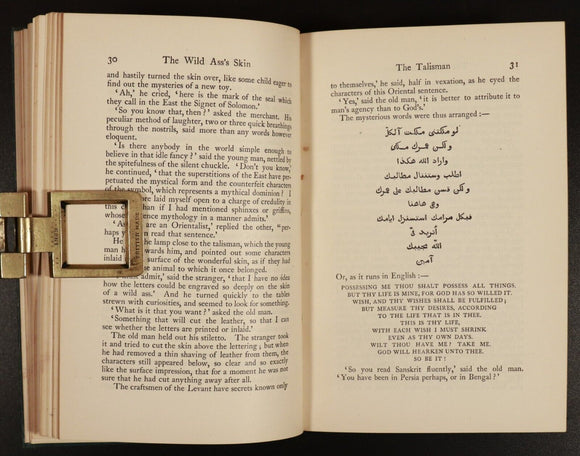 30 The Wild Ass's Skin
and hastily turned the skin over, like some child eager to
find out the mysteries of a new toy.
'Ah,' he cried, 'here is the mark of the seal which
they call in the East the Signet of Solomon.'
'So you know that, then?' asked the merchant. His
peculiar method of laughter, two or three quick breathings
through the nostrils, said more than any words however
eloquent.
'Is there anybody in the world simple enough to
believe in that idle fancy?' said the young man, nettled by
the spitefulness of the silent chuckle. 'Don't you know,'
he continued, 'that the superstitions of the East have per-
petuated the mystical form and the counterfeit characters
of the symbol, which represents a mythical dominion? I
more laid myself open to a charge of credulity in
this case than if I had mentioned sphinxes or griffins,
whose existence mythology in a manner admits.'
are an Orientalist,' replied the other, 'per-
haps you can read that sentence.'
He the lamp close to the talisman, which the young
man held towards him, and pointed out some characters
inlaid surface of the wonderful skin, as if they had
the animal to which it once belonged.
must admit,' said the stranger, 'that I have no idea
how the letters could be engraved so deeply on the skin
of a wild ass.' And he turned quickly to the tables
strewn with curiosities, and seemed to look for something.
'What is it that you want?' asked the old man.
'Something that will cut the leather, so that I can
see whether the letters are printed or inlaid.'
The old man held out his stiletto. The stranger took
it and tried to cut the skin above the lettering; but when
he had removed a thin shaving of leather from them, the
characters still appeared below, so clear and so exactly
like the surface impression, that for a moment he was not
sure that he had cut anything away after all.
'The craftsmen of the Levant have secrets known only
The Talisman 31
to themselves,' he said, half in vexation, as he eyed the
characters of this Oriental sentence.
'Yes,' said the old man, 'it is better to attribute it to
man's agency than to God's.'
The mysterious words were thus arranged:—
لو ملكتنى ملكت آلكل
و لكن عمرك ملكى
واراد الله هكذا
اطلب وستنال مطالبك
و لكن قس مطالبك على عمرك
وهى هاهنا
فبكل مرامك استنزل ايامك
أتريد فى
الله مجيبك
آمين
Or, as it runs in English:—
POSSESSING ME THOU SHALT POSSESS ALL THINGS.
BUT THY LIFE IS MINE, FOR GOD HAS SO WILLED IT.
WISH, AND THY WISHES SHALL BE FULFILLED;
BUT MEASURE THY DESIRES, ACCORDING
TO THE LIFE THAT IS IN THEE.
THIS IS THY LIFE,
WITH EACH WISH I MUST SHRINK
EVEN AS THY OWN DAYS.
WILT THOU HAVE ME? TAKE ME.
GOD WILL HEARKEN UNTO THEE.
SO BE IT!
'So you read Sanskrit fluently,' said the old man.
'You have been in Persia perhaps, or in Bengal?'